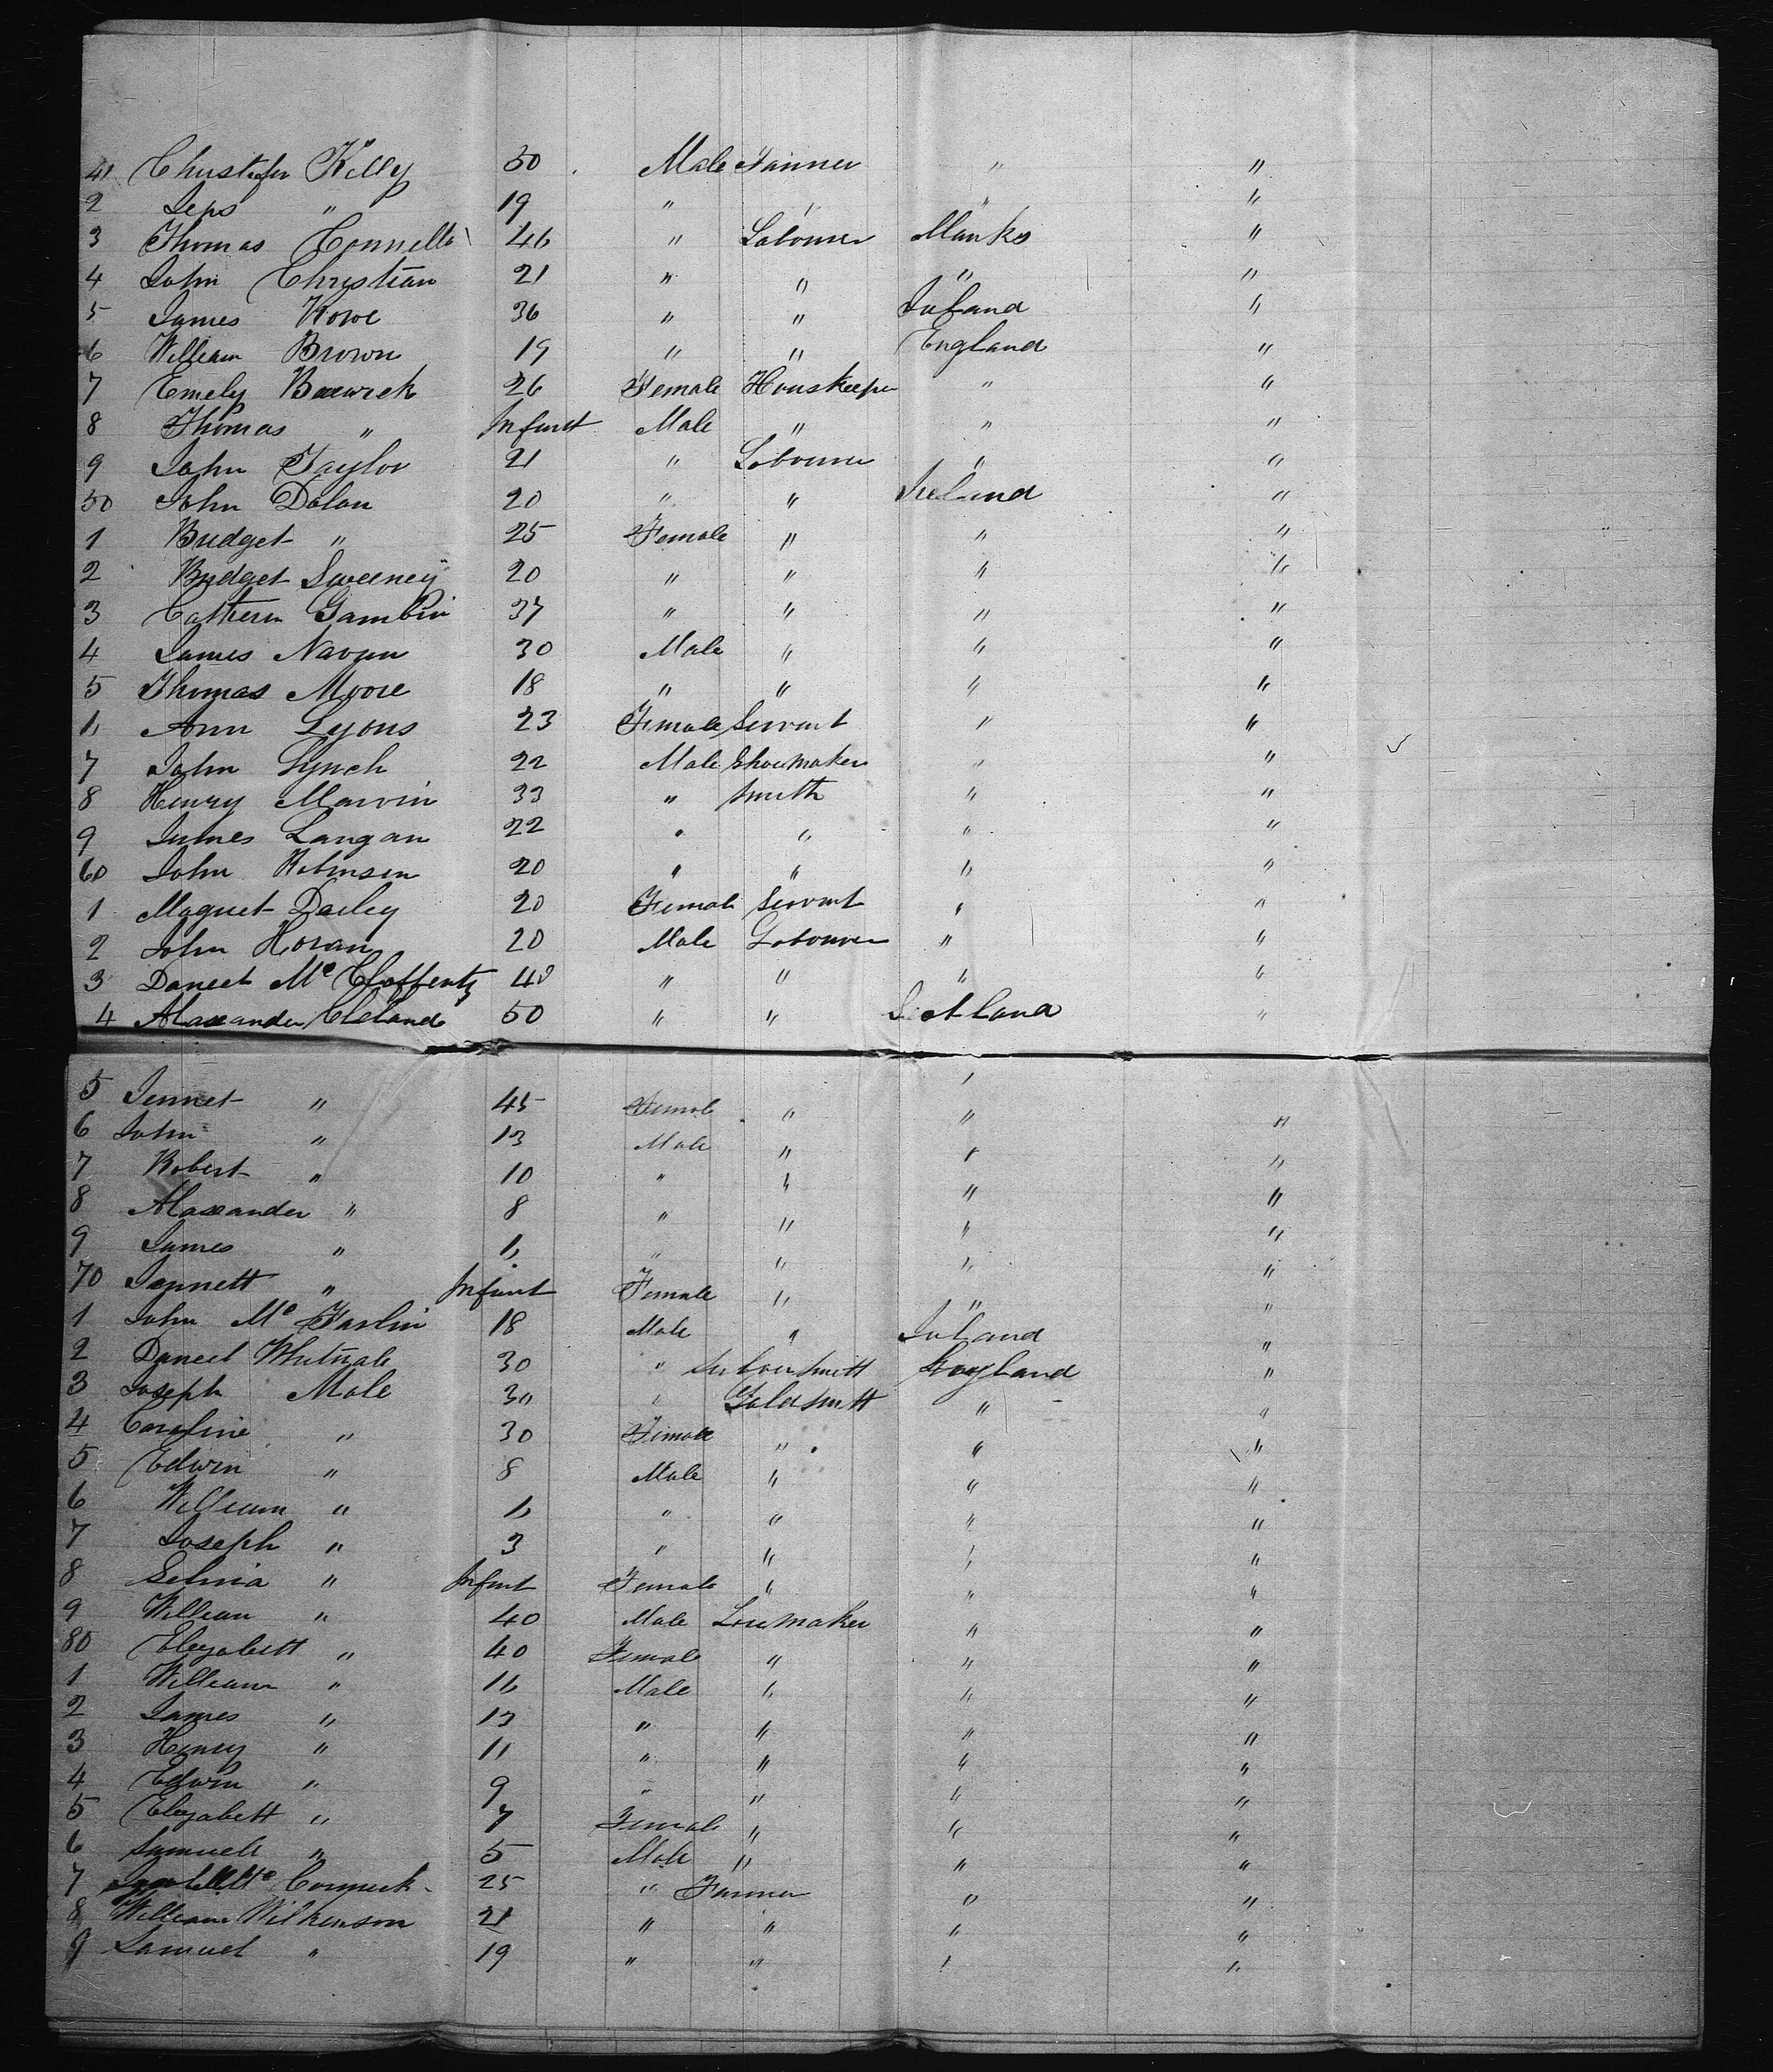 41 Christofer Killy 50 Male Farmer " "
2 Jeps " 19 " " " "
3 Thomas Connella 46 " Labourer Manks "
4 John Christian 21 " " " "
5 James Rowe 36 " " Ireland "
6 William Brown 19 " " England "
7 Emely 26 Female Houskeeper " "
8 Thomas " Infant Male " " "
9 John Taylor 21 " Labourer " "
50 John Dolan 20 " " Ireland "
1 Bridget " 25 Female " " "
2 Bridget Sweeney 20 " " " "
3 Cathern Gamblin 37 " " " "
4 James Navan 30 Male " " "
5 Thomas Moore 18 " " " "
6 Ann Lyons 23 Female Servant " "
7 John Lynch 22 Male Shoemaker " "
8 Henry Marvin 33 " Smith " "
9 James Langan 22 " " " "
60 John Robinson 20 " " " "
1 Magret Dailey 20 Female Servant " "
2 John Horan 20 Male Labourer " "
3 Daneel Mc Clafferty 40 " " " "
4 Alaxander Cleland 50 " " Scotland "
5 Jennet " 45 Female " " "
6 John " 13 Male " " "
7 Robert " 10 " " " "
8 Alaxander " 8 " " " "
9 James " 6 " " " "
70 Jannett " Infant Female " " "
1 John Mc Farlin 18 Male " Ireland "
2 Daneel 30 " Silversmith England "
3 Joseph Male 30 " Goldsmith " "
4 Caroline " 30 Female " " "
5 Edwin " 8 Male " " "
6 William " 6 " " " "
7 Joseph " 3 " " " "
8 Selina " Infant Female " " "
9 William " 40 Male " "
80 Elezabett " 40 Female " " "
1 William " 16 Male " " "
2 James " 13 " " " "
3 Henry " 11 " " " "
4 Edwin " 9 " " " "
5 Elezabett " 7 Female " " "
6 Samuell " 5 Male " " "
7 Mc Cormick 25 " Farmer " "
8 William Wilkinson 21 " " " "
9 Samuel " 19 " " " "